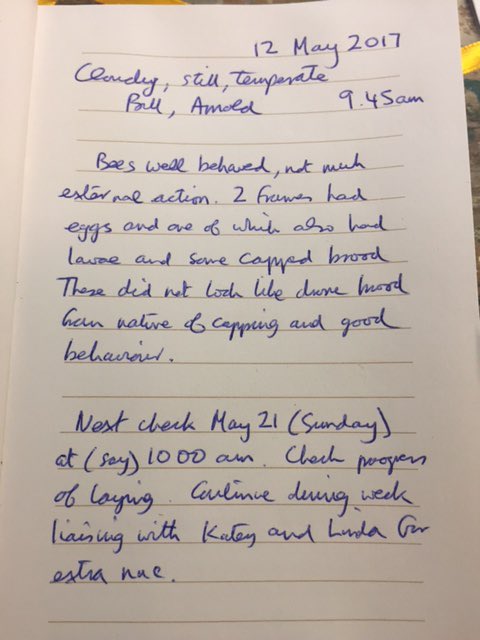 12 May 2017
Cloudy, still, temperate
Bill, Arnold 9.45am
Bees well behaved, not much
external action. 2 frames had
eggs and one of which also had
lavae and some capped brood
These did not look like drone brood
from nature of capping and good
behaviour.
Next check May 21 (Sunday)
at (say) 10 00 am. Check progress
of laying. Continue during week
liaising with Katey and Linda for
extra nuc.